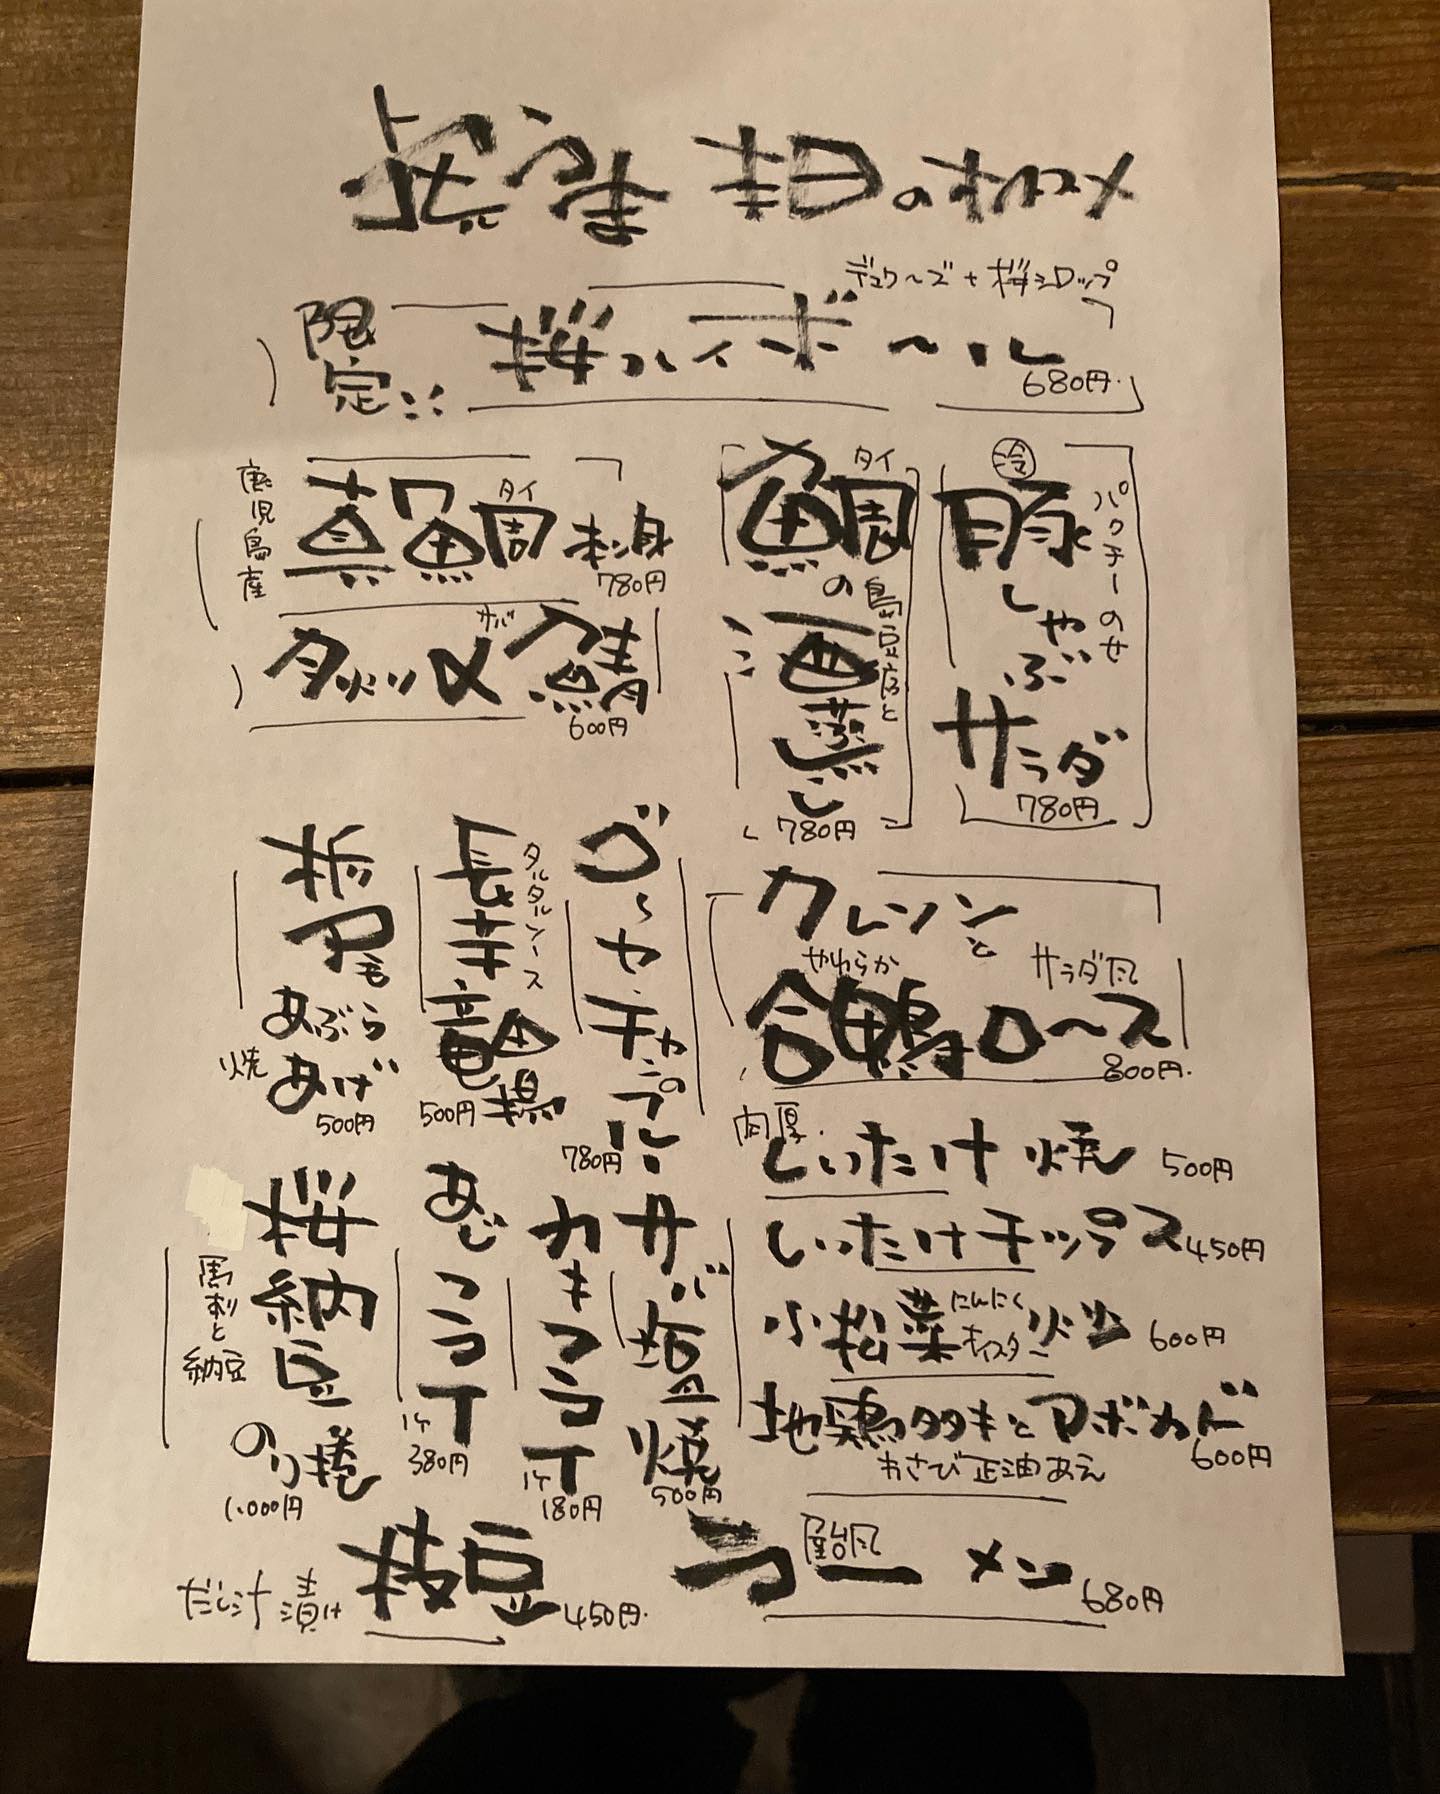 本日のオススメ
デュワーズ+桜シロップ
限定
桜ハイボール
680円
鹿児島産
真鯛 タイ 刺身
780円
タイ
鯛の
島豆腐と
酒蒸し
780円
冷
豚しゃぶ
サラダ
パクチーのせ
780円
サバ
鯖
600円
栃尾
あぶら
あげ
焼
500円
長芋
竜田
揚
タルタルソース
500円
ゴーヤーの
チャンプルー
780円
クレソンと
やわらか
サラダ風
合鴨ロース
800円
肉厚
しいたけ焼 500円
しいたけチップス 450円
小松菜 にんにく オイスター 炒 600円
地鶏タタキとアボカド
わさび正油あえ
600円
桜
納豆
のり捲
馬刺と
納豆
1,000円
あじ
フライ
1ケ
380円
カキ
フライ
1ケ
180円
サバ
塩
焼
500円
だし汁漬け 枝豆 450円
屋台風 ラーメン 680円